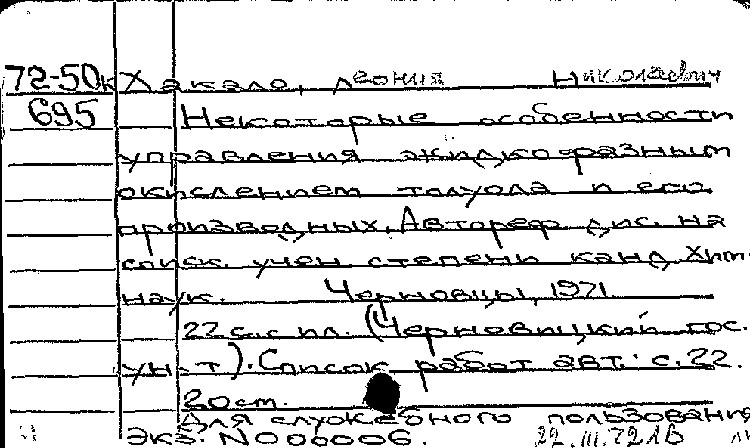 72-50к Хакало, Леония Николаевич
695 Некоторые особенности
управления жидкофазным
окислением толуола и его
производных. Автореф. дис. на
соиск. учен. степени канд. хим.
наук. Черновцы, 1971.
22 с. с ил. (Черновицкий гос.
ун-т). Список работ авт.: с. 22.
20 ст.
Для служебного пользования
Экз. N 000006. 22.III.72 ЛВ